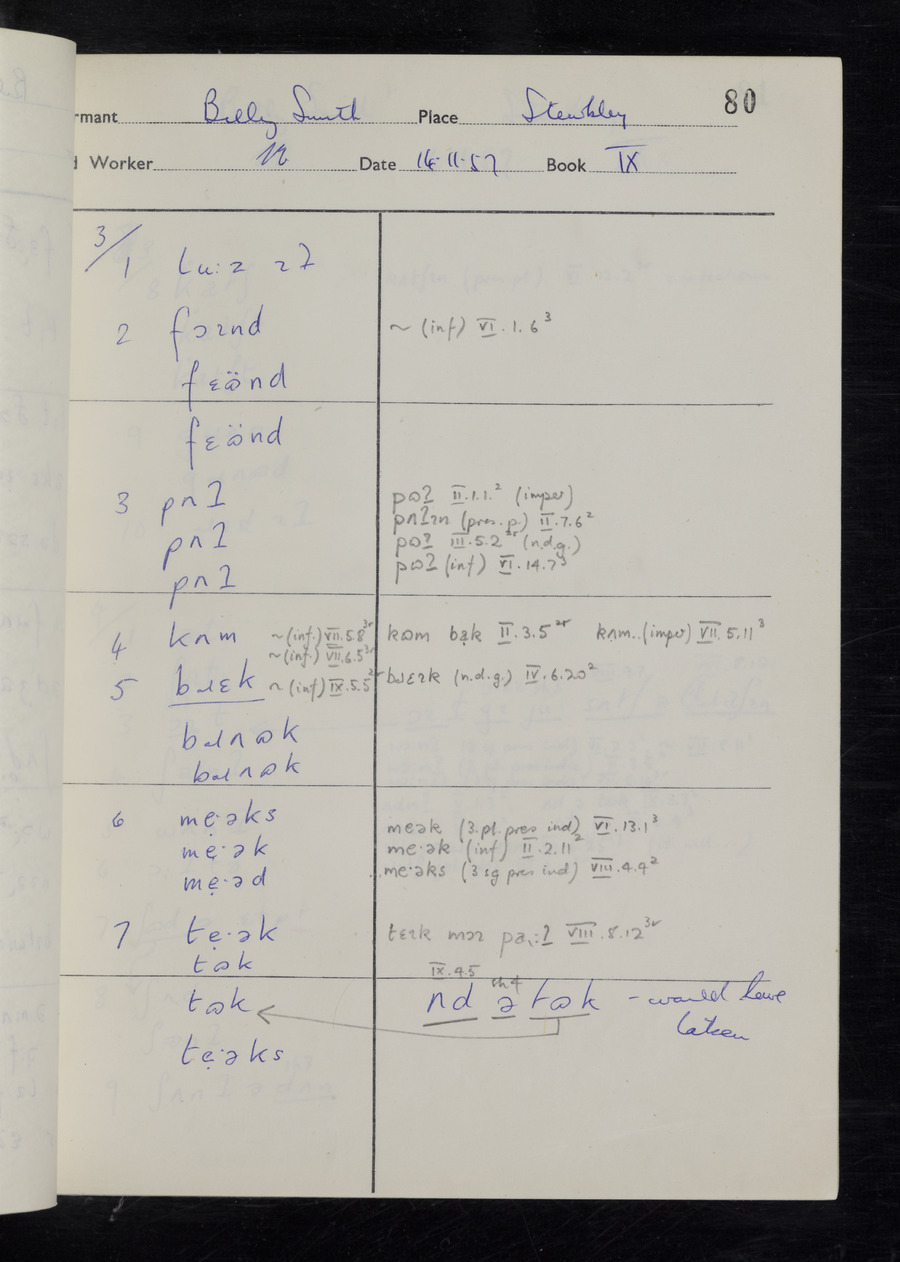 80
rmant Billy Smith Place Stewkley
d Worker Date 14-11-57 Book IX
3/1 lu:z ɪʔ
2 fəɪnd ~ (inf) VI.1.6³
fɛönd
fɛönd
3 pʌʔ pɷʔ II.1.1.² (imper)
pʌʔ pʌʔɪn (pres.p.) II.7.6²
pɷʔ III.5.2 (n.d.g.)
pʌʔ pɷʔ (inf) VI.14.7³
4 kʌm ~ (inf.) VII.5.8 kɷm bạk II.3.5 kʌm. (imper) VII.5.11³
~ (inf.) VII.6.5
5 bɹɛk ~ (inf) IX.5.5 bɹɛɪk (n.d.g.) IV.6.20²
bɹʌɷk
bɹʌɷk
6 mẹ·əks meək (3.pl. pres ind) VI.13.1³
mẹ·ək me·ək (inf) II.2.11²
mẹ·əd me·əks (3 sg pres ind) VIII.4.4²
7 tẹ·ək tɛɪk VIII.8.12
tɷk
IX.4.5
tɷk nd ə tɷk - would have
taken
tẹ·əks